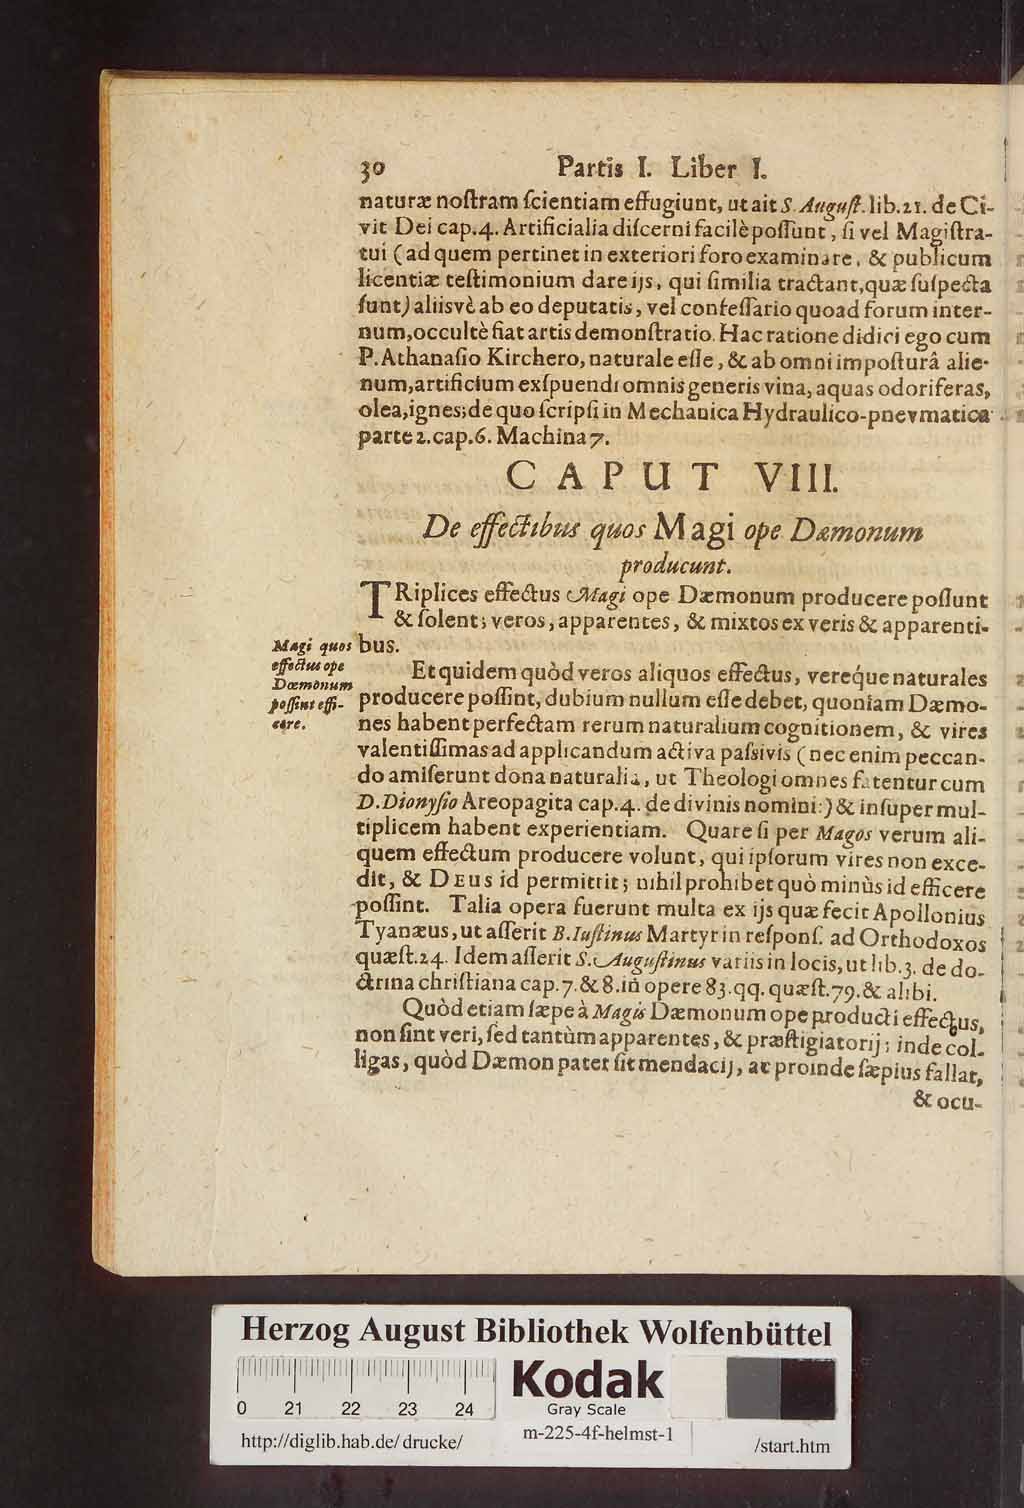 30 Partis I. Liber I.
naturæ noſtram ſcientiam effugiunt, ut ait S. Auguſt. lib.21. de Ci-
vit Dei cap.4. Artificialia diſcerni facilè poſſunt, ſi vel Magiſtra-
tui (ad quem pertinet in exteriori foro examinare, & publicum
licentiæ teſtimonium dare ijs, qui ſimilia tractant, quæ ſuſpecta
ſunt) aliisvè ab eo deputatis, vel confeſſario quoad forum inter-
num, occultè fiat artis demonſtratio. Hac ratione didici ego cum
P. Athanaſio Kirchero, naturale eſſe, & ab omni impoſturâ alie-
num, artificium exſpuendi omnis generis vina, aquas odoriferas,
olea, ignes; de quo ſcripſi in Mechanica Hydraulico-pnevmatica
parte 2. cap.6. Machina 7.
CAPUT VIII.
De effectibus quos Magi ope Dæmonum
producunt.
TRiplices effectus Magi ope Dæmonum producere poſſunt
& ſolent; veros, apparentes, & mixtos ex veris & apparenti-
bus.
Magi quos
effectus ope
Dœmonum
poſſint effi-
care.
Et quidem quòd veros aliquos effectus, vereq́ue naturales
producere poſſint, dubium nullum eſſe debet, quoniam Dæmo-
nes habent perfectam rerum naturalium cognitionem, & vires
valentiſſimas ad applicandum activa paſsivis (nec enim peccan-
do amiſerunt dona naturalia, ut Theologi omnes fatentur cum
D. Dionyſio Areopagita cap.4. de divinis nomini:) & inſuper mul-
tiplicem habent experientiam. Quare ſi per Magos verum ali-
quem effectum producere volunt, qui ipſorum vires non exce-
dit, & DEUS id permittit; nihil prohibet quò minùs id efficere
poſſint. Talia opera fuerunt multa ex ijs quæ fecit Apollonius
Tyanæus, ut aſſerit B. Iuſtinus Martyr in reſponſ. ad Orthodoxos
quæſt.24. Idem aſſerit S. Auguſtinus variis in locis, ut lib.3. de do-
ctrina chriſtiana cap.7. & 8. in opere 83. qq. quæſt.79. & alibi.
Quòd etiam ſæpe à Magis Dæmonum ope producti effectus,
non ſint veri, ſed tantùm apparentes, & præſtigiatorij; inde col-
ligas, quòd Dæmon pater ſit mendacij, ac proinde ſæpius fallat,
& ocu-
Herzog August Bibliothek Wolfenbüttel
0 21 22 23 24
Kodak
Gray Scale
http://diglib.hab.de/drucke/
m-225-4f-helmst-1
/start.htm